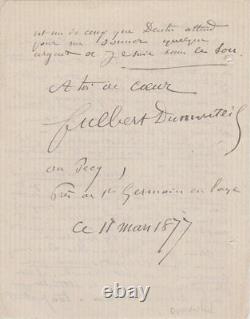 est un de coup que Dentu attend
pour me donner quelque
argent et je suis sans le sou.
A toi de cœur
Fulbert Dumonteil
au Pecq,
Près de St Germain en Laye
Ce 18 mars 1877